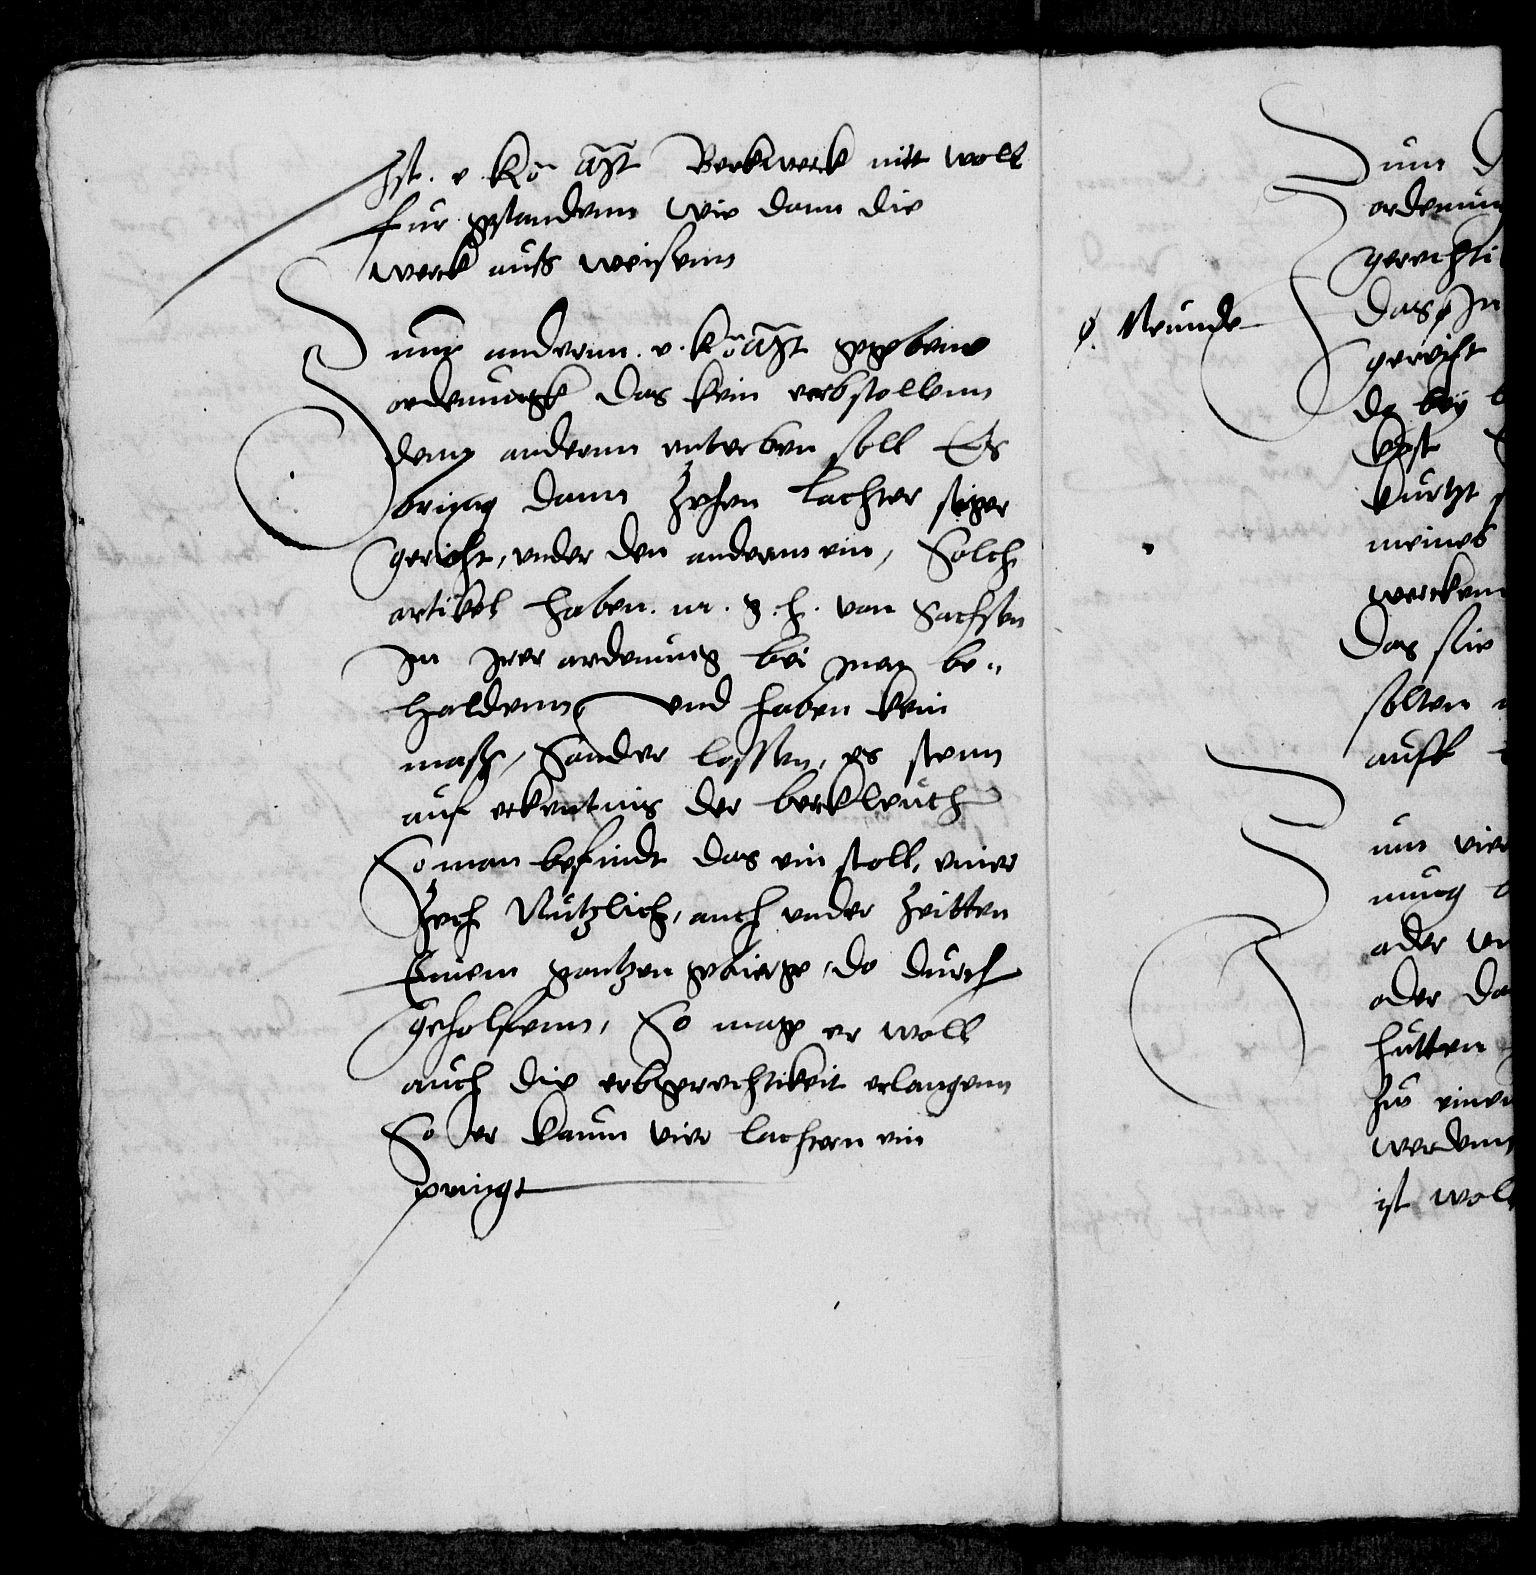 Ist. e. Kö. Mat. Berkwerk nitt woll
fur gestandenn wie dann die
werck auss weisenn
Zum anderen. e. Kö Mat. gegebene
ordenungk das kein erbstollenn
denn anderenn enterben soll Es
bring dann Zehen lachter seiger
gericht, under den anderenn ein, Solch
artikel haben. m. g. h. von Sachsen
In Irer ordenung bei man be„
haldenn und haben kein
mass, Sonder lassen, es stenn
auf erkentnis der berkleuth
So man befindt das ein stoll, einer
Zech Nutzlich, auch under Zeitten
Einem gantzen gebierge, do durch
geholfenn, So mage er woll
auch die erbgerechtikeit erlangenn
So er kaum vier lachtern ein
pringt
Neunde
Zum
ordenung
gerechti
Das In
gericht
da bey
kost
kurtzt
meines
wercken
Das sie
solten
auff
Zum vier
nung
oder
oder da
hutten
Zu einen
werdenn
ist woll